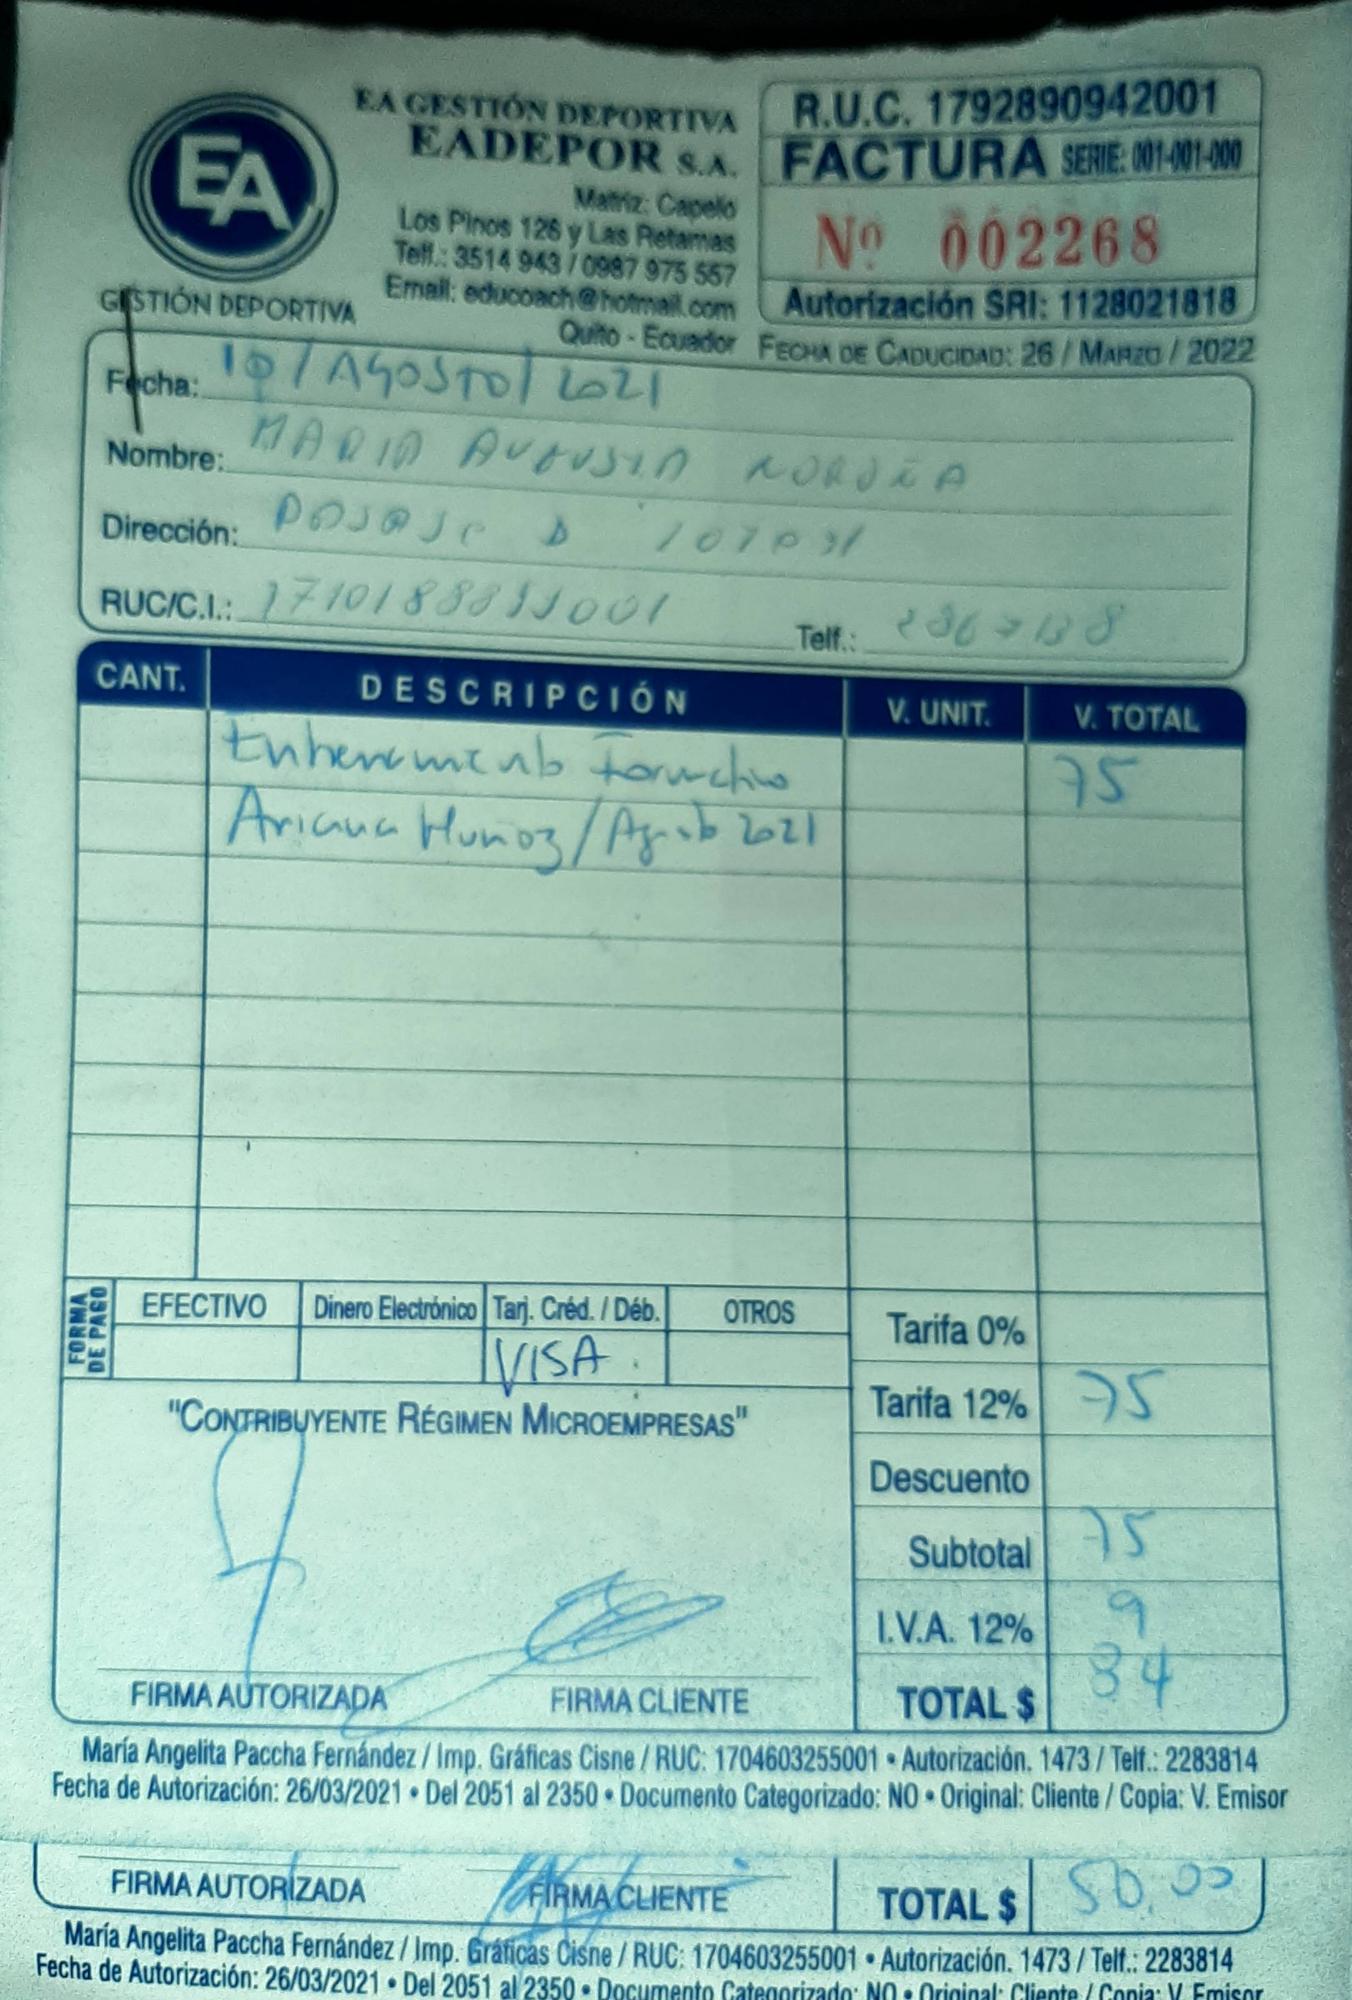 EA
GESTIÓN DEPORTIVA
EA GESTIÓN DEPORTIVA
EADEPOR S.A.
Matriz: Capelo
Los Pinos 126 y Las Retamas
Telf.: 3514 943 / 0987 975 557
Email: educoach@hotmail.com
Quito - Ecuador
R.U.C. 1792890942001
FACTURA SERIE: 001-001-000
Nº 002268
Autorización SRI: 1128021818
FECHA DE CADUCIDAD: 26 / MARZO / 2022
Fecha: 10/AGOSTO/2021
Nombre: MARIA AUGUSTA NOROÑA
Dirección: PASAJE D
RUC/C.I.:
Telf.:
CANT. DESCRIPCIÓN V. UNIT. V. TOTAL
Entrenamiento Formativo 75
Ariana Muñoz/Agosto 2021
FORMA DE PAGO
EFECTIVO Dinero Electrónico Tarj. Créd. / Déb. OTROS
VISA
Tarifa 0%
Tarifa 12% 75
Descuento
Subtotal 75
I.V.A. 12% 9
TOTAL $ 84
"CONTRIBUYENTE RÉGIMEN MICROEMPRESAS"
FIRMA AUTORIZADA FIRMA CLIENTE
María Angelita Paccha Fernández / Imp. Gráficas Cisne / RUC: 1704603255001 • Autorización. 1473 / Telf.: 2283814
Fecha de Autorización: 26/03/2021 • Del 2051 al 2350 • Documento Categorizado: NO • Original: Cliente / Copia: V. Emisor
FIRMA AUTORIZADA FIRMA CLIENTE TOTAL $ 50.00
María Angelita Paccha Fernández / Imp. Gráficas Cisne / RUC: 1704603255001 • Autorización. 1473 / Telf.: 2283814
Fecha de Autorización: 26/03/2021 • Del 2051 al 2350 • Documento Categorizado: NO • Original: Cliente / Copia: V. Emisor